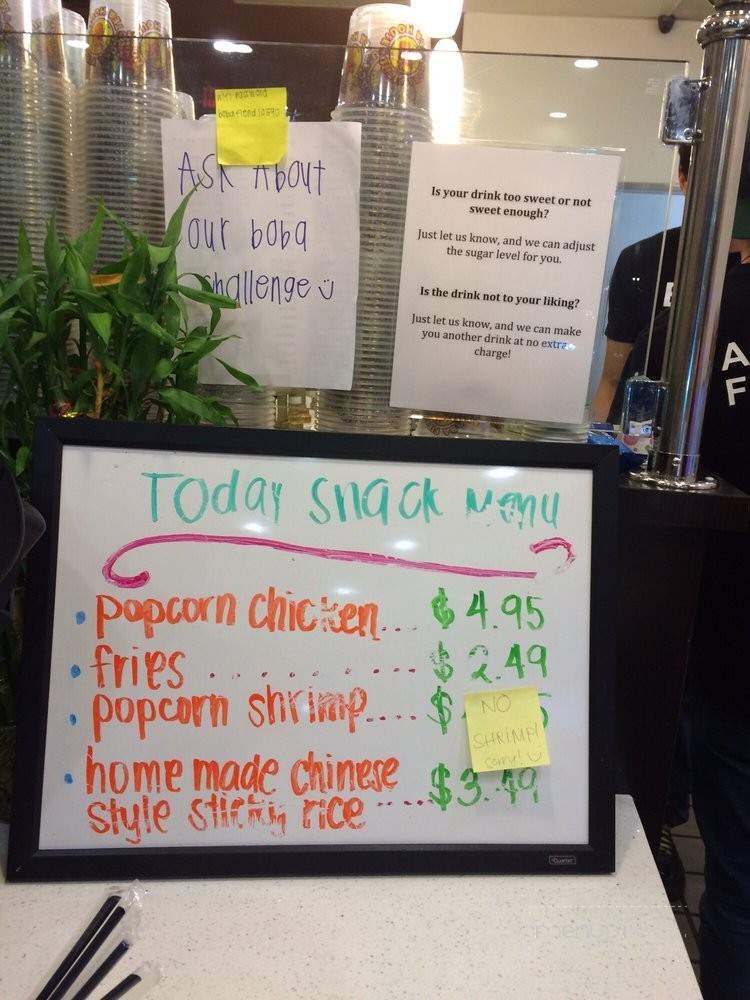 ASK About
our boba
challenge
Is your drink too sweet or not
sweet enough?
Just let us know, and we can adjust
the sugar level for you.
Is the drink not to your liking?
Just let us know, and we can make
you another drink at no extra
charge!
A
F
Today snack Menu
• popcorn chicken.... $4.95
• fries ............ $2.49
• popcorn shrimp.... $ 5
NO
SHRIMP!
sorry!
• home made chinese
style sticky rice .... $3.49
Quartet